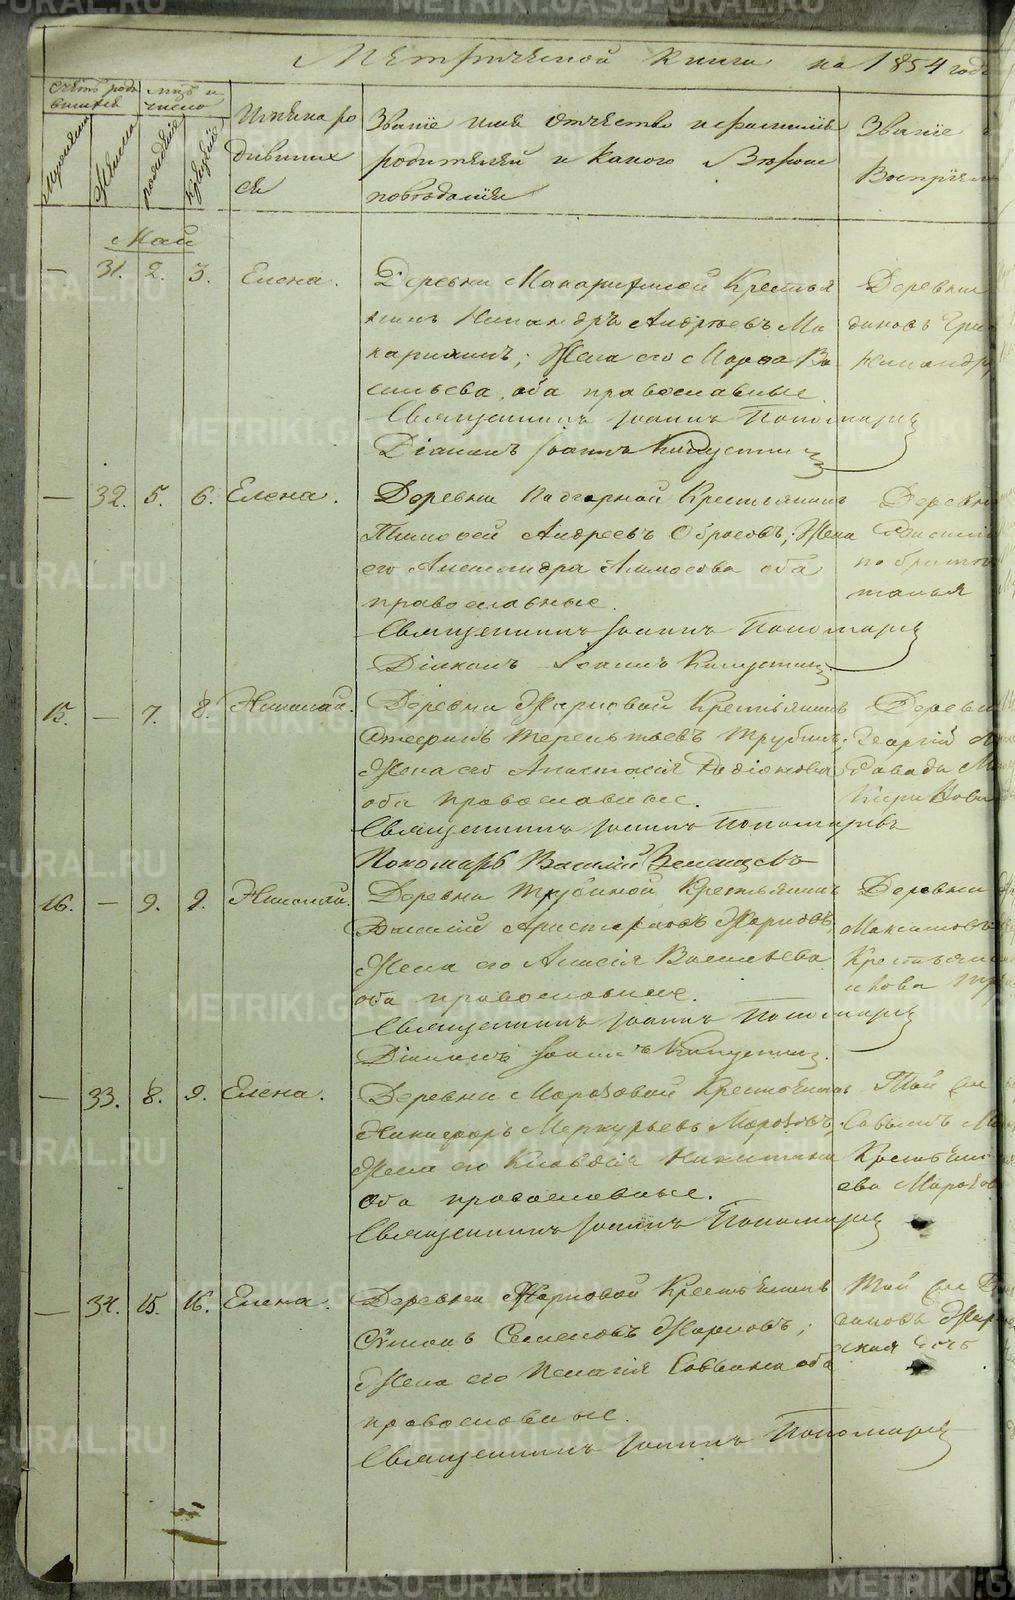 Метрической книги на 1854 годъ
Счетъ родившихся
Мѣс. и число
Мужеска
Женска
рожденіе
крещеніе
Имена ро
дивших
ся
Званіе имя отчество и фамилія
родителей и какого вѣроис
повѣданія
Званіе
Воспріем
Май
— 31. 2. 3. Елена.
Деревни Макарихиной Крестья
нинъ Никандръ Андреевъ Ма
карихинъ; Жена его Марѳа Ва
сильева, оба православные
Священникъ Іоаннъ Пономаревъ
Діаконъ Іоаннъ Капустинъ
Деревни
диновъ Гри
Никандр
— 32. 5. 6. Елена.
Деревни Подгорной Крестьянинъ
Тимоѳей Андреевъ Обросовъ; Жена
его Александра Аммосова оба
православные.
Священникъ Іоаннъ Пономаревъ
Діаконъ Іоаннъ Капустинъ
Деревни
Василій
15. — 7. 8. Николай.
Деревни Жарковой Крестьянинъ
Терентьевъ Трубинъ;
Жена его Анастасія Родіонова
оба православные.
Священникъ Іоаннъ Пономаревъ
Пономарь Василій
Деревни
Георгій
16. — 9. 9. Николай.
Деревни Трубиной Крестьянинъ
Василій Аристарховъ Жарковъ,
Жена его Анисія Васильева
оба православные.
Священникъ Іоаннъ Пономаревъ
Діаконъ Іоаннъ Капустинъ.
Деревни
Максимовъ
Крестьян
— 33. 8. 9. Елена.
Деревни Морозовой Крестьянинъ
Никифоръ Меркурьевъ Морозовъ,
Жена его Клавдія Никитина
оба православные.
Священникъ Іоаннъ Пономаревъ
Той же
Крестьян
ева Морозов
— 34. 15. 16. Елена.
Деревни Жарковой Крестьянинъ
Семеновъ Жарковъ;
Жена его Пелагія Саввина оба
православные.
Священникъ Іоаннъ Пономаревъ
Той же
Жар
дочь
METRIKI.GASO-URAL.RU